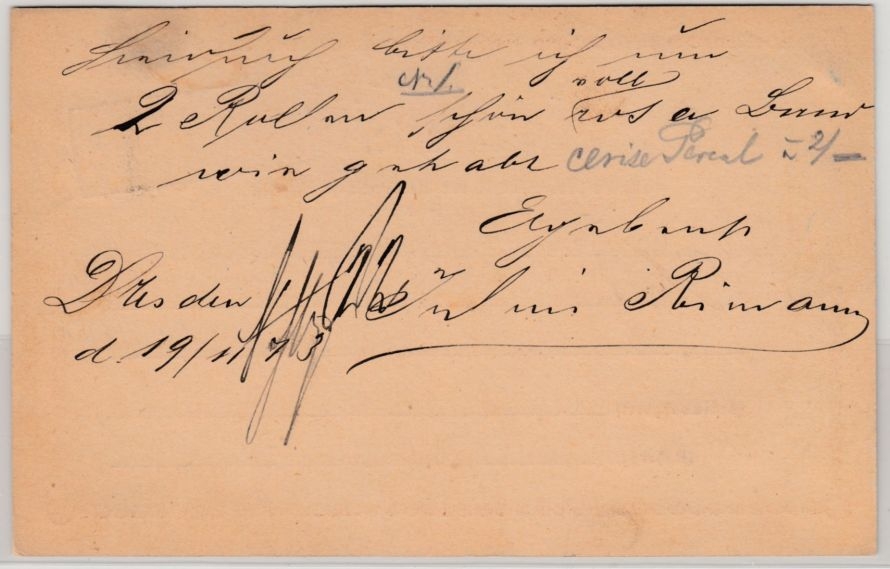 Hierdurch bitte ich um
No 1. voll
2 Rollen schön rosa Band
wie gehabt cerise Percal 2/–
Ergebenst
Dresden Julius Reimann
d. 19/11 73